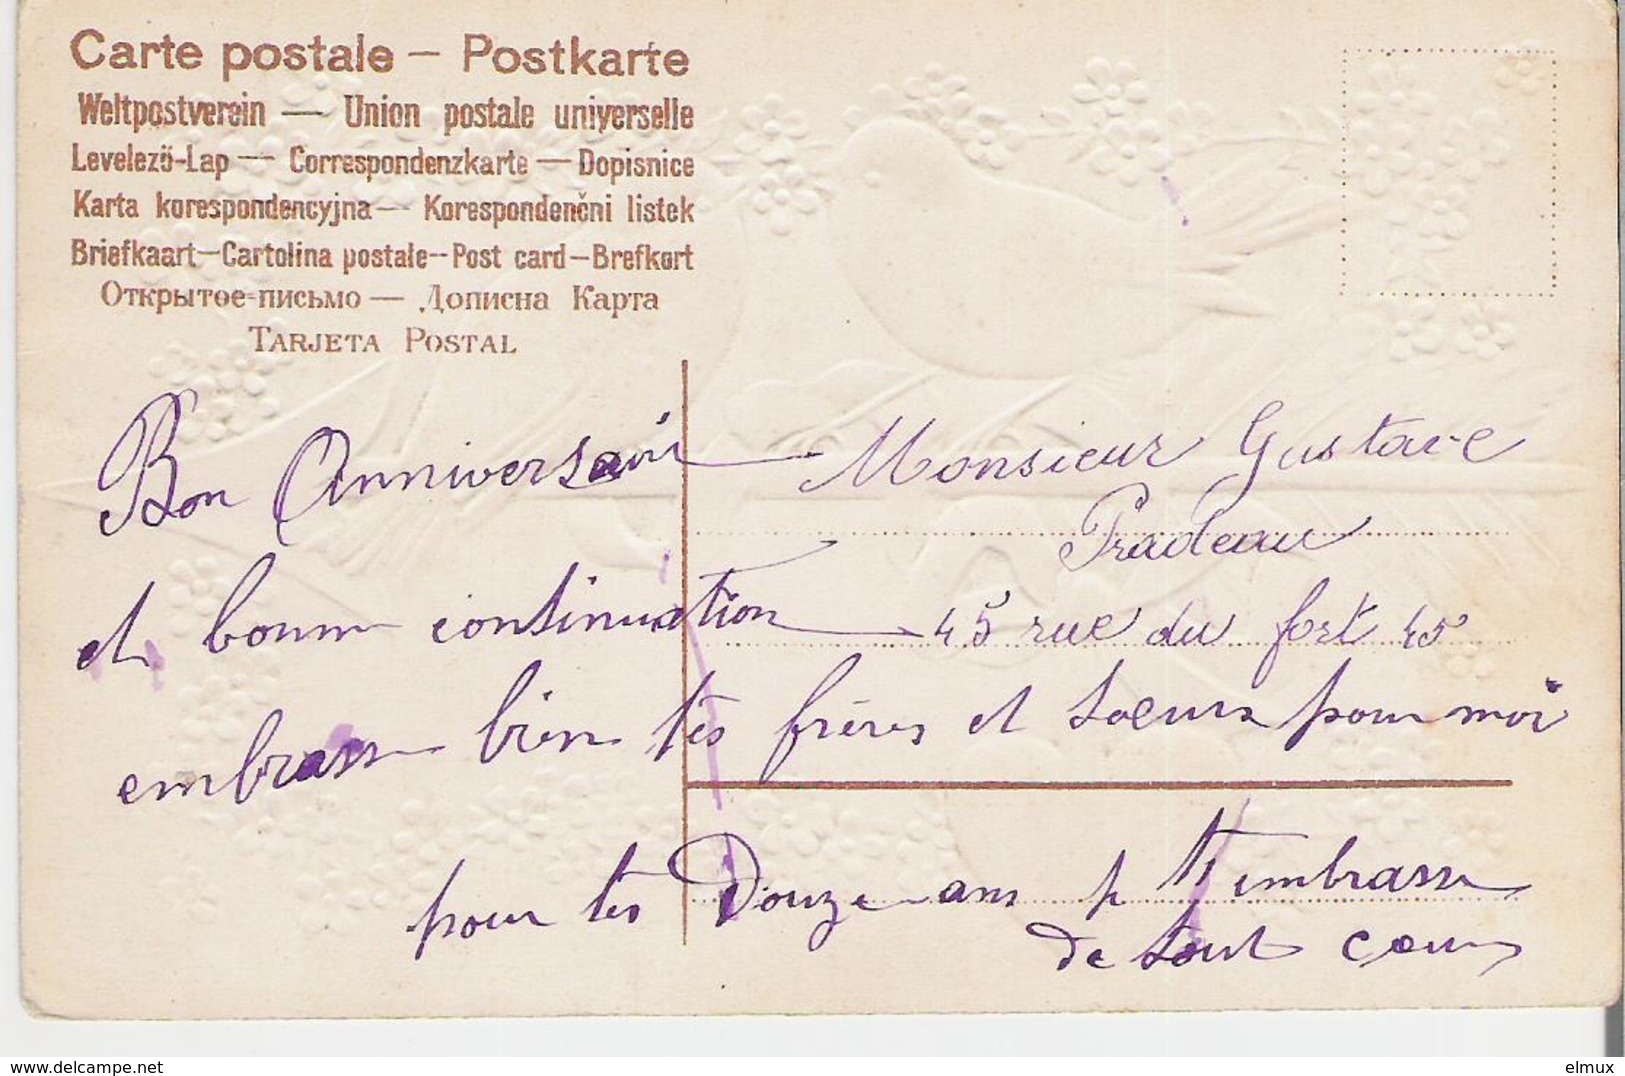 Carte postale – Postkarte
Weltpostverein — Union postale universelle
Levelező-Lap — Correspondenzkarte — Dopisnice
Karta korespondencyjna — Korespondenčni listek
Briefkaart — Cartolina postale -- Post card — Brefkort
Открытое письмо — Дописна Карта
TARJETA POSTAL
Bon Anniversaire
et bonne continuation
embrasse bien tes frères et sœurs pour moi
pour tes Douze ans je t'embrasse
de tout cœur
Monsieur Gustave
Pradeau
45 rue du fort 45
www.delcampe.net
elmux